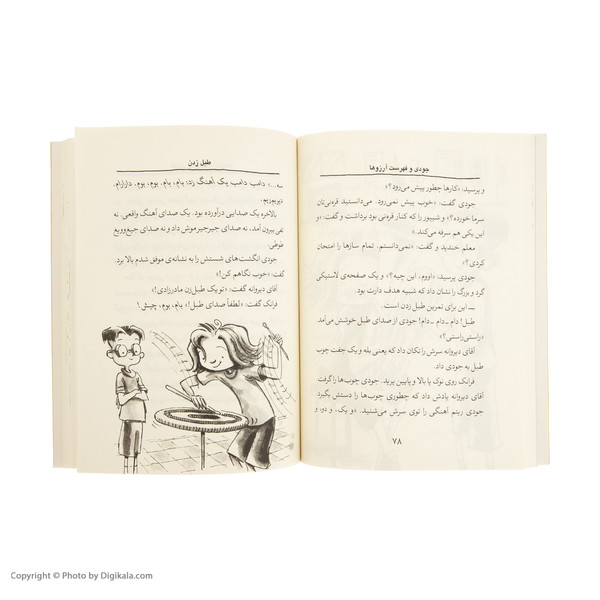 جودی و فهرست آرزوها
و پرسید: «کارها چطور پیش می‌رود؟»
جودی گفت: «خوب پیش نمی‌رود. می‌دانستید قره‌نی‌تان
سرما خورده؟» و شیپور را که کنار قره‌نی بود برداشت و گفت: «و
این یکی هم سرفه می‌کند.»
معلم خندید و گفت: «نمی‌دانستم. تمام سازها را امتحان
کردی؟»
جودی پرسید: «اووم، این چیه؟» و یک صفحه‌ی لاستیکی
گرد و بزرگ را نشان داد که شبیه هدف دارت بود.
ـ این برای تمرین طبل زدن است.
طبل! دام ـ دام ـ دام! جودی از صدای طبل خوشش می‌آمد.
«راستی‌راستی؟»
آقای دیوانه سرش را تکان داد که یعنی بله و یک جفت چوب
طبل به جودی داد.
فرانک روی نوک پا بالا و پایین پرید. جودی چوب‌ها را گرفت.
آقای دیوانه یادش داد که چطوری چوب‌ها را دستش بگیرد.
جودی ریتم آهنگی را توی سرش می‌شنید. «و یک، و دو، و
۷۸
طبل زدن
سه...» دامب دامب یک آهنگ زد: بام، بام، بوم، بوم، دارارام،
دیریم‌ریم.
بالاخره یک صدایی درآورده بود. یک صدای آهنگ واقعی. نه
نفی بیرون آمد، نه صدای جیرجیر موش داد و نه صدای جیغ‌وویغ
طوطی.
جودی انگشت‌های شستش را به نشانه‌ی موفق شدم بالا برد.
گفت: «خوب نگاهم کن!»
آقای دیوانه گفت: «تو یک طبل‌زن مادرزادی!»
فرانک گفت: «لطفاً صدای طبل!» بام، بوم، چیش!
Copyright © Photo by Digikala.com